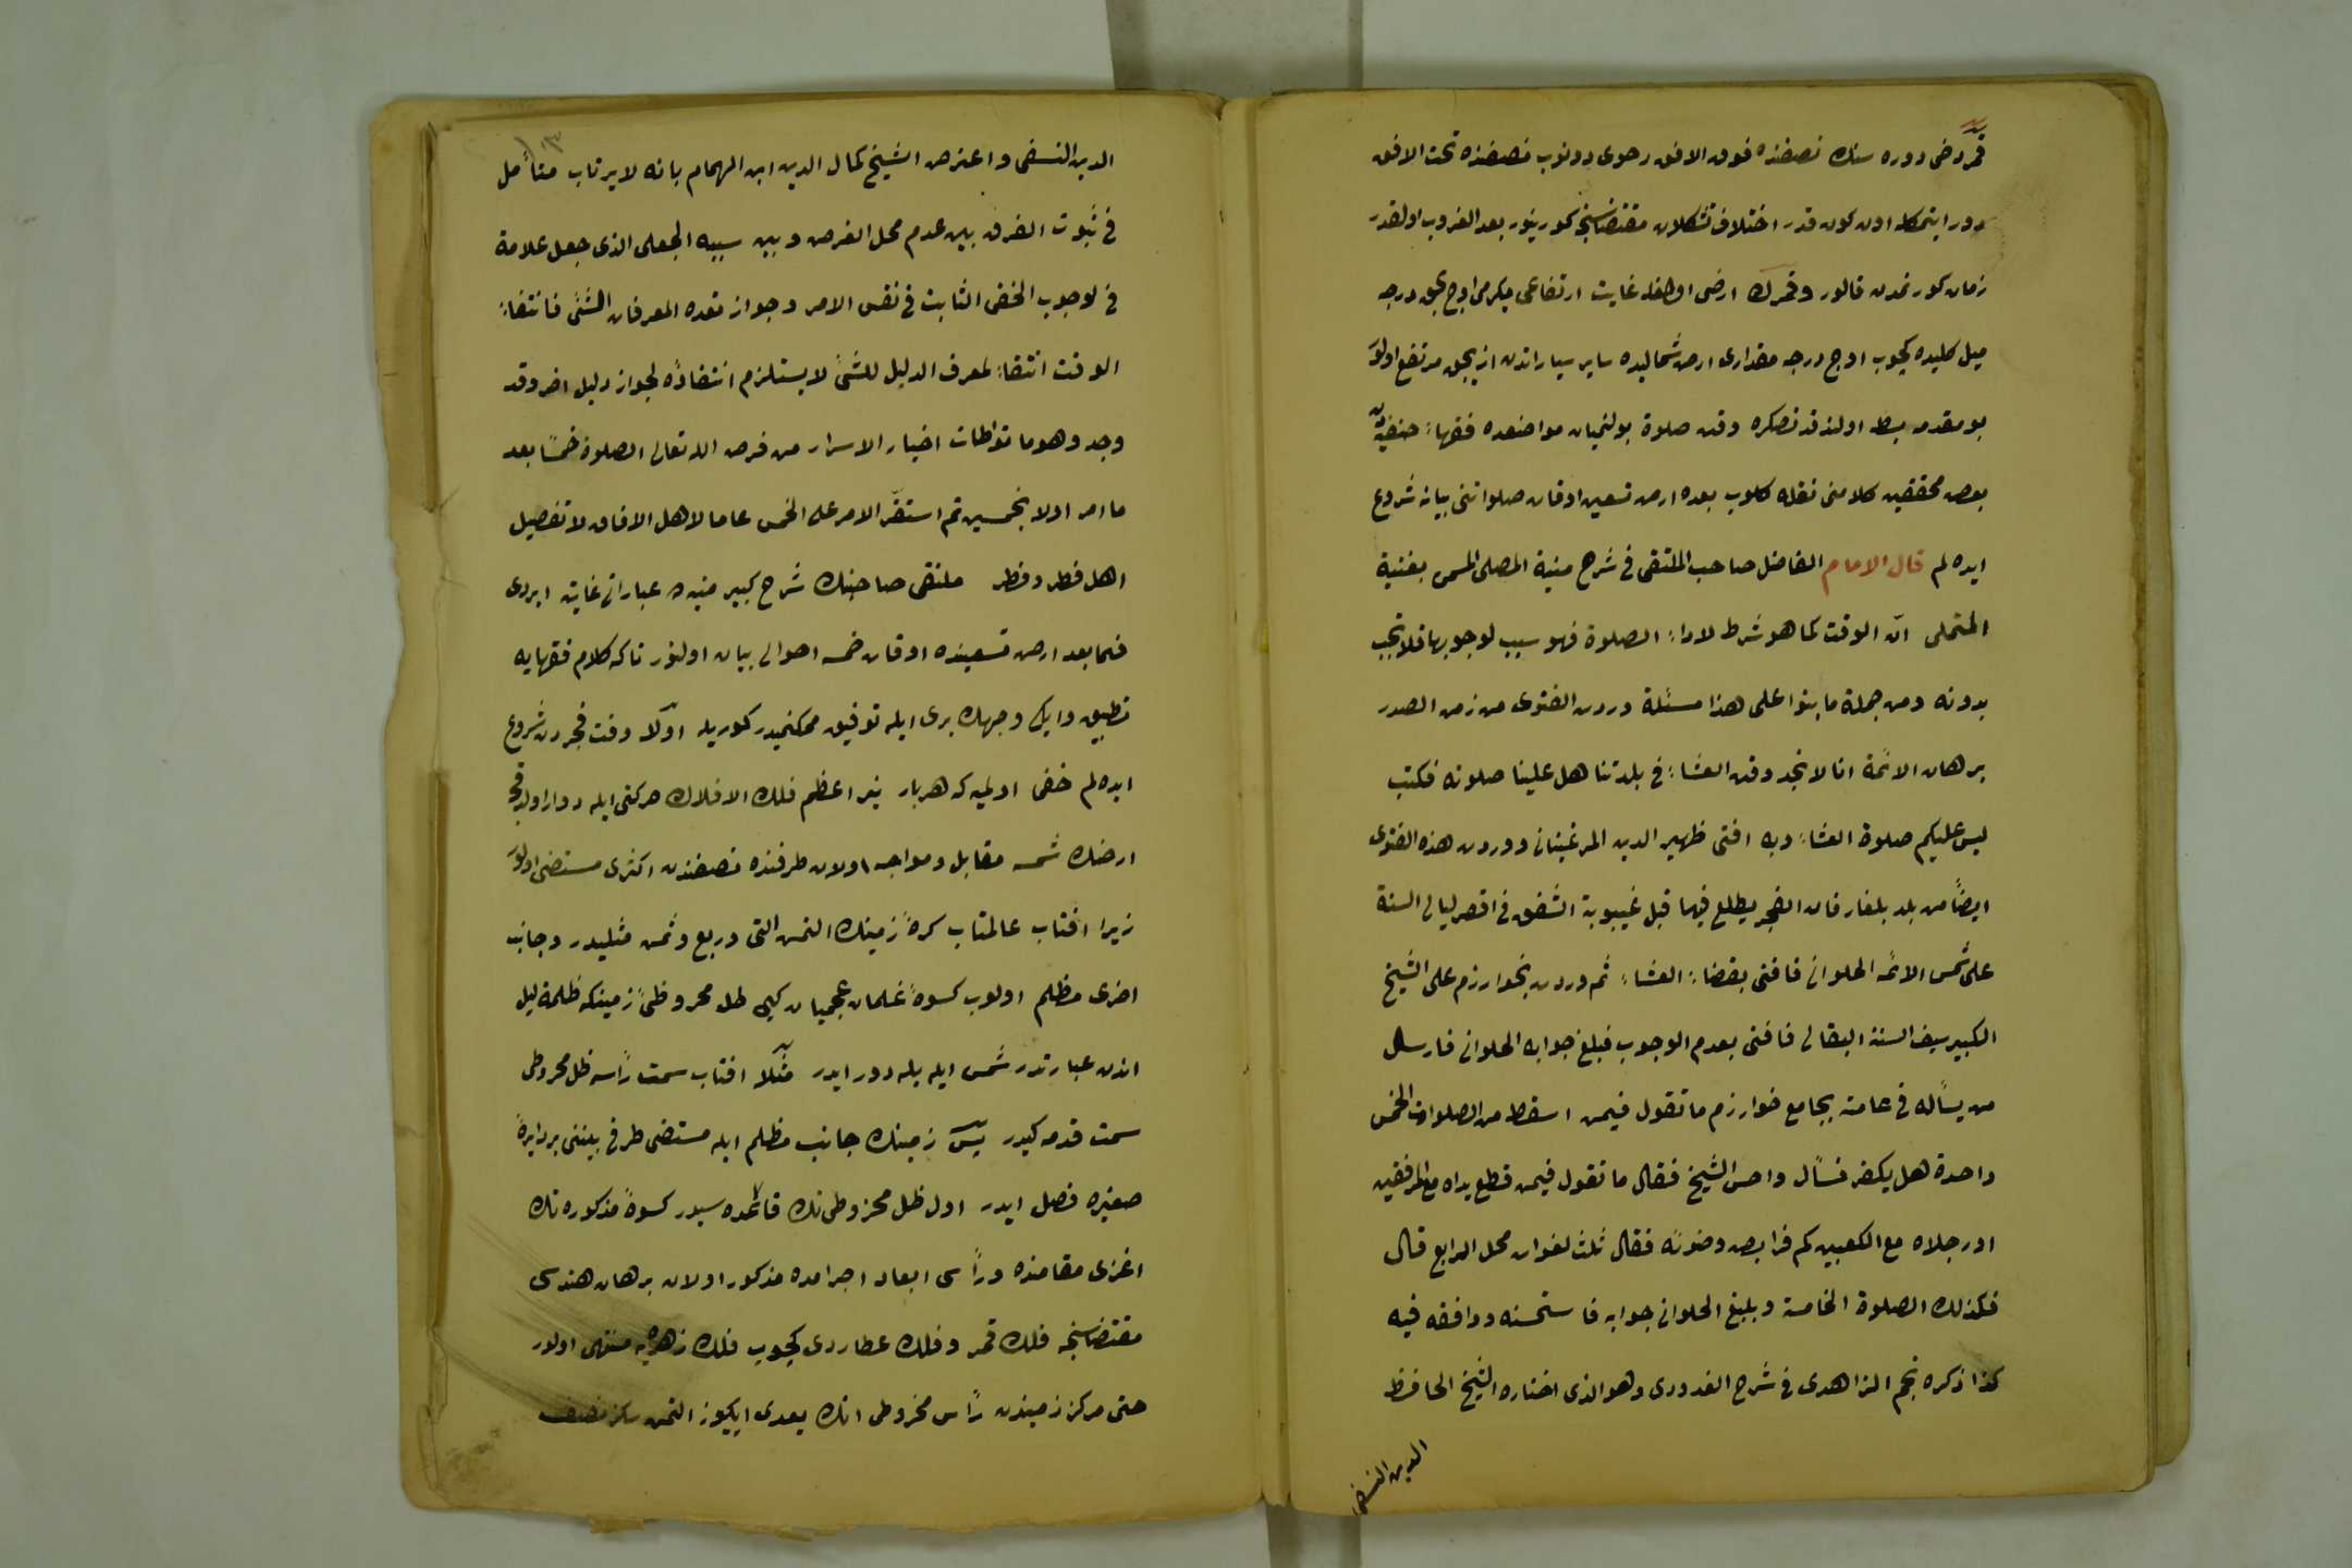 قمر دخی دوره سنك نصفنده فوق الافق رحوی دونوب نصفنده تحت الافق
دور ایتمكله اون كون قدر اختلاف تشكلات مقتضاسنجه كورینور بعد الغروب اولقدر
زمان كورنمدن قالور وقمرك ارضی اولغله غایت ارتفاعی یكرمی اوچ بچق درجه
میل كلیده كچوب اوچ درجه مقداری ارض شمالیده سایر سیاراتدن ازیجق مرتفع اولور
بو مقدمه بسط اولندقدنصكره وقت صلوة بولنمیان مواضعده فقهاء حنفیه نك
بعض محققین كلامنی نقله كلوب بعده ارض تسعین اوقات صلواتنی بیانه شروع
ایده لم قال الامام الفاضل صاحب الملتقی فی شرح منیة المصلی المسمی بغنیة
المتملی ان الوقت كما هو شرط لاداء الصلوة فهو سبب لوجوبها فلا تجب
بدونه ومن جملة ما بنوا علی هذا مسئلة وردت الفتوی من زمن الصدر
برهان الائمة انا لا نجد وقت العشاء فی بلدتنا هل علینا صلوته فكتب
لیس علیكم صلوة العشاء وبه افتی ظهیر الدین المرغینانی ووردت هذه الفتوی
ایضاً من بلد بلغار فان الفجر یطلع فیها قبل غیبوبة الشفق فی اقصر لیالی السنة
علی شمس الائمه الحلوانی فافتی بقضاء العشاء ثم وردت بخوارزم علی الشیخ
الكبیر سیف السنة البقالی فافتی بعدم الوجوب فبلغ جوابه الحلوانی فارسل
من یسأله فی عامته بجامع خوارزم ما تقول فیمن اسقط من الصلوات الخمس
واحدة هل یكفر فسأل واحس الشیخ فقال ما تقول فیمن قطع یداه مع المرفقین
اورجلاه مع الكعبین كم فرایض وضوئه فقال ثلث لفوات محل الرابع قال
فكذلك الصلوة الخامسة وبلغ الحلوانی جوابه فاستحسنه ووافقه فیه
كذا ذكره نجم الزاهدی فی شرح القدوری وهو الذی اختاره الشیخ الحافظ
الدین النسفی
الدین النسفی واعترض الشیخ كمال الدین ابن الهمام بانه لا یرتاب متأمل
فی ثبوت الفرق بین عدم محل الفرض وبین سببه الجعلی الذی جعل علامة
فی لوجوب الخفی الثابت فی نفس الامر وجواز تعده المعرفات الشئ فانتفاء
الوقت انتفاء لمعرف الدلیل للشئ لا یستلزم انتفاؤه لجواز دلیل اخر وقد
وجد وهو ما تواطات اخبار الاسرار من فرض الله تعالی الصلوة خمسا بعد
ما امر اولا بخمسین ثم استقر الامر علی الخمس عاما لاهل الافاق لا تفصیل
اهل قطر وقطر ملتقی صاحبنك شرح كبیر منیه ده عباراتی غایته ایردی
فیما بعد ارض تسعینده اوقات خمسه احوالی بیان اولنور تاكه كلام فقهایه
تطبیق وایكی وجهك بری ایله توفیق ممكنمیدر كوریله اولا وقت فجردن شروع
ایده لم خفی اولمیه كه هربار نیر اعظم فلك الافلاك حركتی ایله دوار اولدقجه
ارضك شمسه مقابل ومواجه اولان طرفنده نصفندن اكثری مستضی اولور
زیرا افتاب عالمتاب كرهٔ زمینك التمش التی وربع وثمن مثلیدر وجانب
اخری مظلم اولوب كسوهٔ غلمان عجمیان كبی ظل مخروطئ زمینكه ظلمة لیل
اندن عبارتدر شمس ایله بله دور ایدر مثلا افتاب سمت رأسه ظل مخروطی
سمت قدمه كیدر پس زمینك جانب مظلم ایله مستضی طرفی بیننی بر دایرهٔ
صغیره فصل ایدر اول ظل مخروطی نك قاعده سیدر كسوهٔ مذكوره نك
اغزی مقامنده ورأسی ابعاد اجرامده مذكور اولان برهان هندسی
مقتضاسنجه فلك قمر وفلك عطاردی كچوب فلك زهره یه منتهی اولور
حتی مركز زمیندن رأس مخروطی انك بعدی ایكیوز التمش سكز نصف